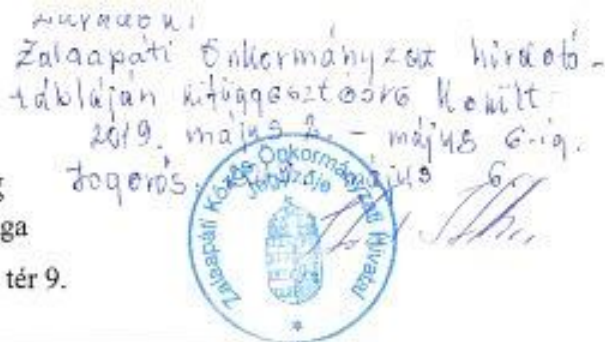 Záradék:
Zalaapáti Önkormányzat hirdető-
tábláján kifüggesztésre került
2019. május 2. - május 6-ig.
Jogerős: május 6.
Zalaapáti Közös Önkormányzati Hivatal
Jegyzője
ga
tér 9.